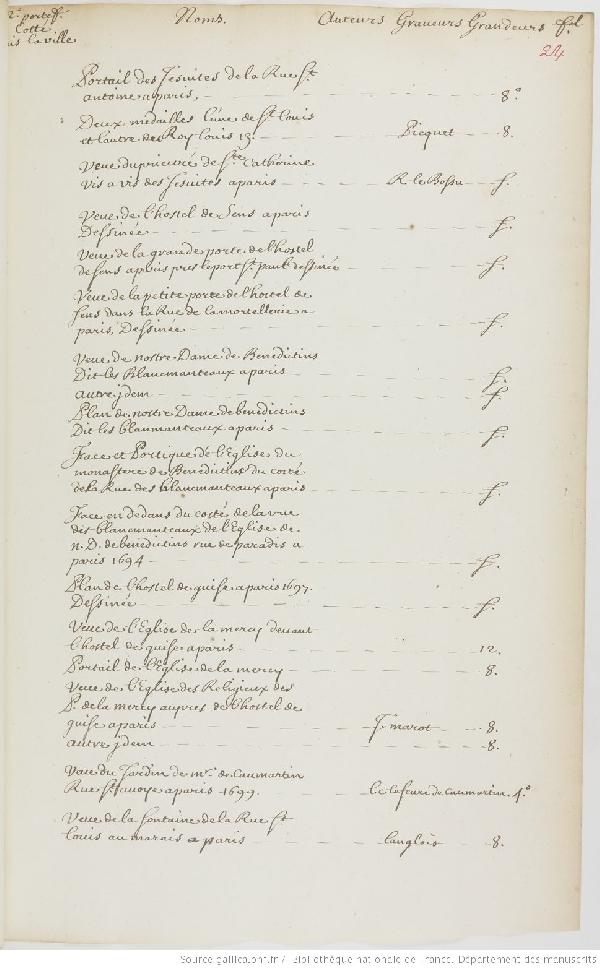 2e. porteff. Noms. Auteurs Graveurs Grandeurs fol
Cotté 24
la ville
Portail des Jesuites de la Rue St.
antoine a paris, 8°
Deux medailles l'une de St. Louis
et l'autre du Roy Louis 13. Picquet 8.
Veue du prieuré de Ste. Catherine
vis a vis des Jesuites a paris R. le Bossu f.
Veue de l'hostel de Sens a paris
Dessinée f.
Veue de la grande porte de l'hostel
de sens a paris pres le port St. paul dessinée f.
Veue de la petite porte de l'hostel de
sens dans la Rue de la mortellerie a
paris, Dessinée f.
Veue de nostre Dame de Benedictins
Dit les Blancmanteaux a paris f.
autre jdem f.
Plan de nostre Dame de benedictins
Dit les blanmanteaux a paris f.
Face et Portique de l'Eglise du
monastere de Benedictins du costé
de la Rue des blancmanteaux a paris f.
Face en dedans du costé de la rue
des blancmanteaux de l'Eglise de
n. D. de benedictins rue de paradis a
paris 1694 f.
Plan de l'hostel de guise a paris 1697.
Dessinée f.
Veue de l'Eglise de la mercy devant
l'hostel de guise a paris 12.
Portail de l'Eglise de la mercy 8.
Veue de l'Eglise des Religieux des
P. de la mercy aupres de l'hostel de
guise a paris J. marot 8.
autre jdem 8.
Veue du Jardin de mr. de Caumartin
Rue St. avoye a paris 1699. le Caumartin 4°
Veue de la fontaine de la Rue St.
Louis au marais a paris langlois 8.
Source gallica.bnf.fr / Bibliothèque nationale de France. Département des manuscrits